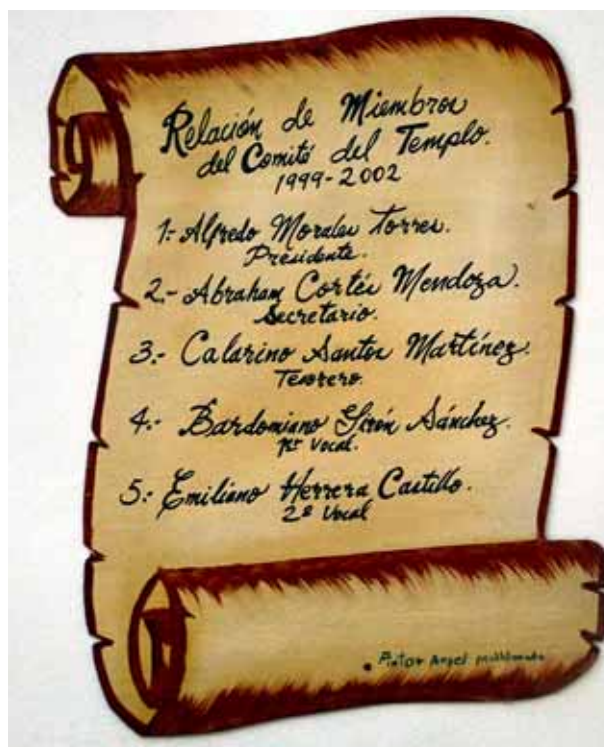 Relación de Miembros
del Comité del Templo.
1999-2002
1.- Alfredo Morales Torres.
Presidente.
2.- Abraham Cortés Mendoza.
Secretario.
3.- Calarino Santos Martínez.
Tesorero.
4.- Bardomiano Girón Sánchez.
1er Vocal.
5.- Emiliano Herrera Castillo.
2º Vocal
Pintor Angel